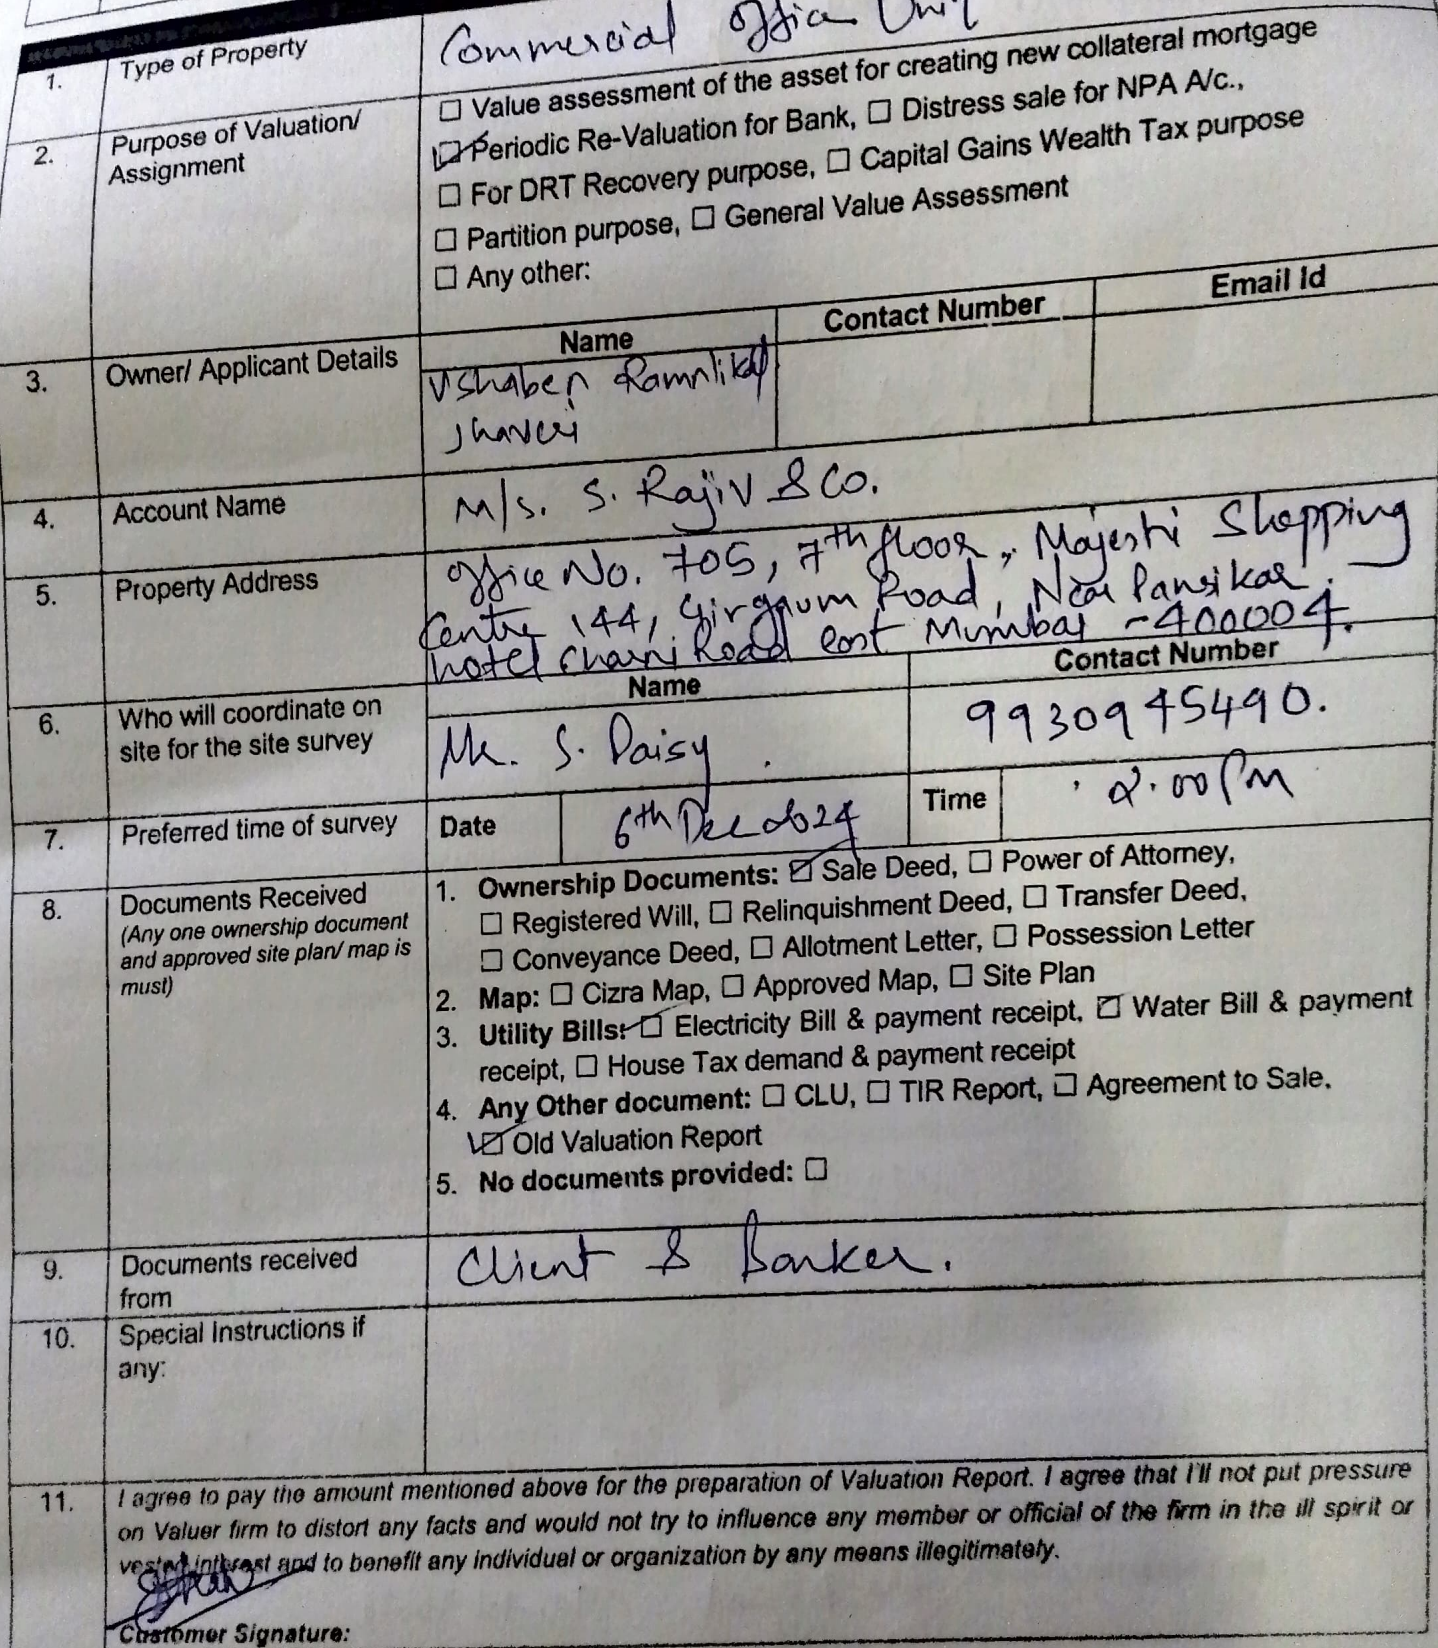 1. Type of Property Commercial Office Unit
2. Purpose of Valuation/ Assignment
☐ Value assessment of the asset for creating new collateral mortgage
☑ Periodic Re-Valuation for Bank, ☐ Distress sale for NPA A/c.,
☐ For DRT Recovery purpose, ☐ Capital Gains Wealth Tax purpose
☐ Partition purpose, ☐ General Value Assessment
☐ Any other:
Name Contact Number Email Id
3. Owner/ Applicant Details Ushaben Ramnlikal
Jhaveri
4. Account Name M/s. S. Rajiv & Co.
5. Property Address Office No. 705, 7th floor, Majestic Shopping
Centre 144, Girgaum Road, Near Pansikar
hotel Charni Road east Mumbai - 400004.
Name Contact Number
6. Who will coordinate on
site for the site survey Mr. S. Daisy 9930945490.
7. Preferred time of survey Date 6th Dec 2024 Time 2.00 PM
8. Documents Received
(Any one ownership document
and approved site plan/ map is
must)
1. Ownership Documents: ☑ Sale Deed, ☐ Power of Attorney,
☐ Registered Will, ☐ Relinquishment Deed, ☐ Transfer Deed,
☐ Conveyance Deed, ☐ Allotment Letter, ☐ Possession Letter
2. Map: ☐ Cizra Map, ☐ Approved Map, ☐ Site Plan
3. Utility Bills: ☑ Electricity Bill & payment receipt, ☑ Water Bill & payment
receipt, ☐ House Tax demand & payment receipt
4. Any Other document: ☐ CLU, ☐ TIR Report, ☐ Agreement to Sale,
☑ Old Valuation Report
5. No documents provided: ☐
9. Documents received
from Client & Banker.
10. Special Instructions if
any:
11. I agree to pay the amount mentioned above for the preparation of Valuation Report. I agree that I'll not put pressure
on Valuer firm to distort any facts and would not try to influence any member or official of the firm in the ill spirit or
vested interest and to benefit any individual or organization by any means illegitimately.
Customer Signature: